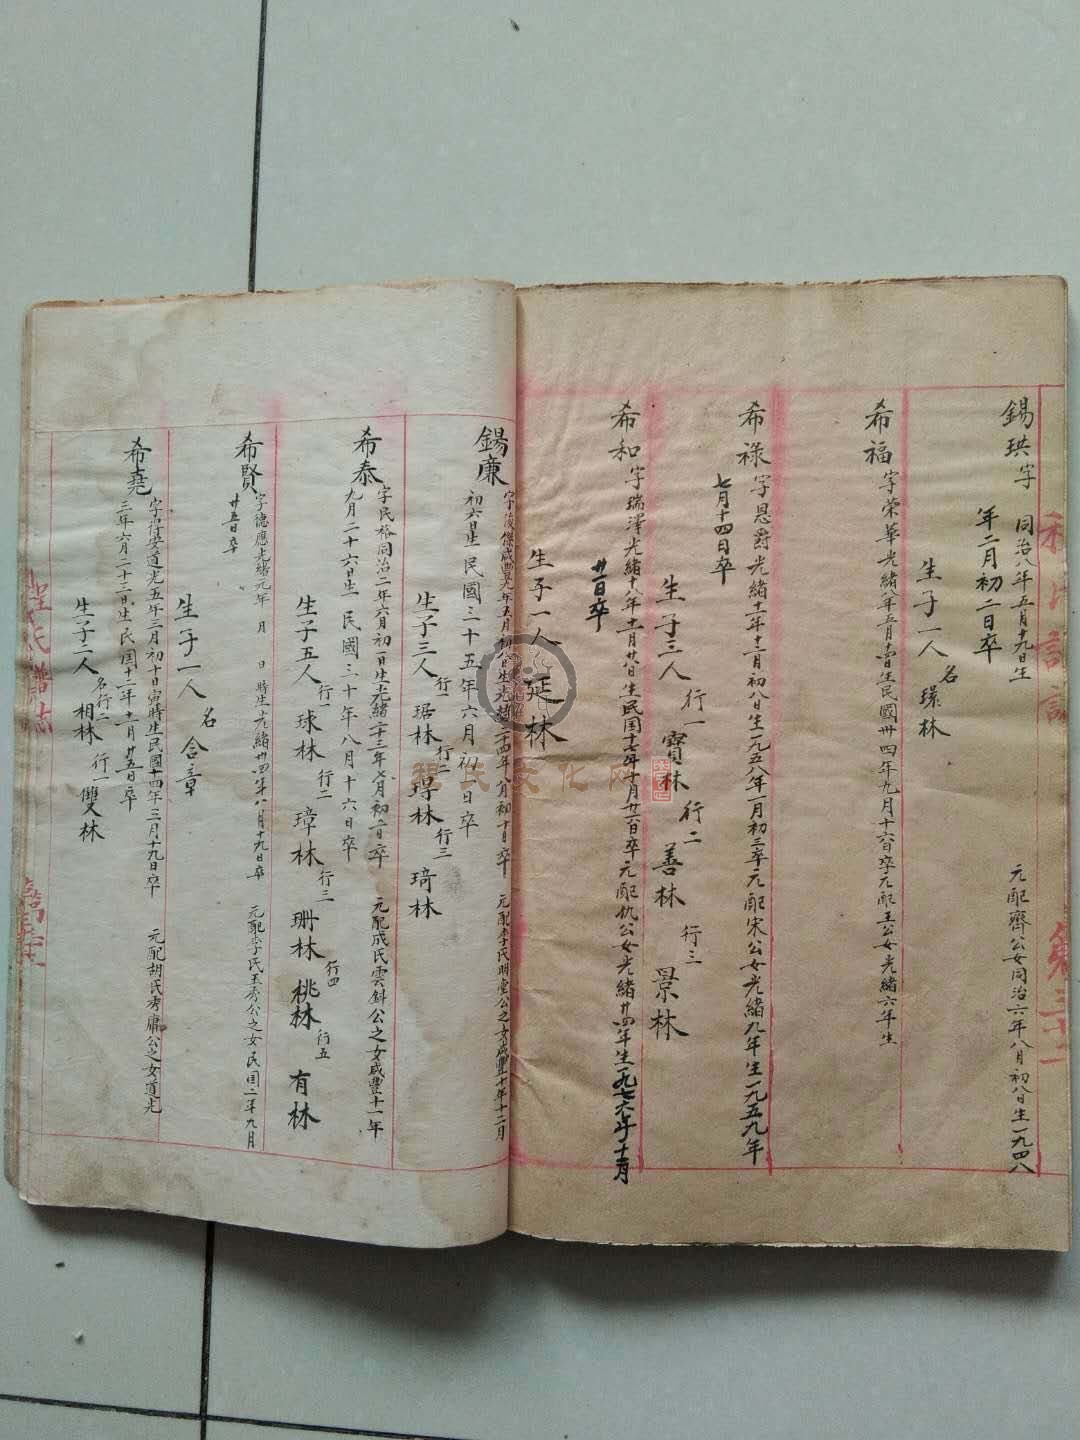 錫珙字 同治八年五月十九日生 元配齊公女同治六年八月初八日生一九四八
年二月初二日卒
生子一人 名 環林
希福 字榮華光緒八年五月 生民國卅四年九月十六日卒元配王公女光緒六年生
希祿 字恩爵光緒十一年十二月初八日生一九五八年一月初三卒元配宋公女光緒九年生一九五九年
七月十四日卒
生子三人 行一 寶林 行二 善林 行三 景林
希和 字瑞澤光緒十八年十二月廿八日生民国十七年十月廿六日卒元配仇公女光緒廿四年生一九七六年十二月
廿一日卒
生子一人 延林
錫廉 字俊傑咸豐九年五月初八日生光緒三十四年八月初十日卒 元配李氏明堂公之女咸豐十年十二月
初六日生民國三十五年六月初 日卒
生子三人 行一 琚林 行二 璕林 行三 琦林
希泰 字民裕同治二年六月初一日生光緒二十三年七月初二日卒 元配成氏雲斜公之女咸豐十一年
九月二十六日生民國三十年八月十六日卒
生子五人 行一 球林 行二 璋林 行三 珊林 行四 桃林 行五 有林
希賢 字德應光緒元年 月 日 時生光緒卅四年八月十九日卒 元配李氏玉秀公之女民国二年九月
廿五日卒
生子一人 名 含章
希堯 字 安道光五年三月初十日寅時生民國十四年三月十九日卒 元配胡氏秀庸公之女道光
三年六月二十三日生民国十二年十一月廿五日卒
生子二人 名行二 相林 行一 雙林
程氏譜誌
程氏文化网